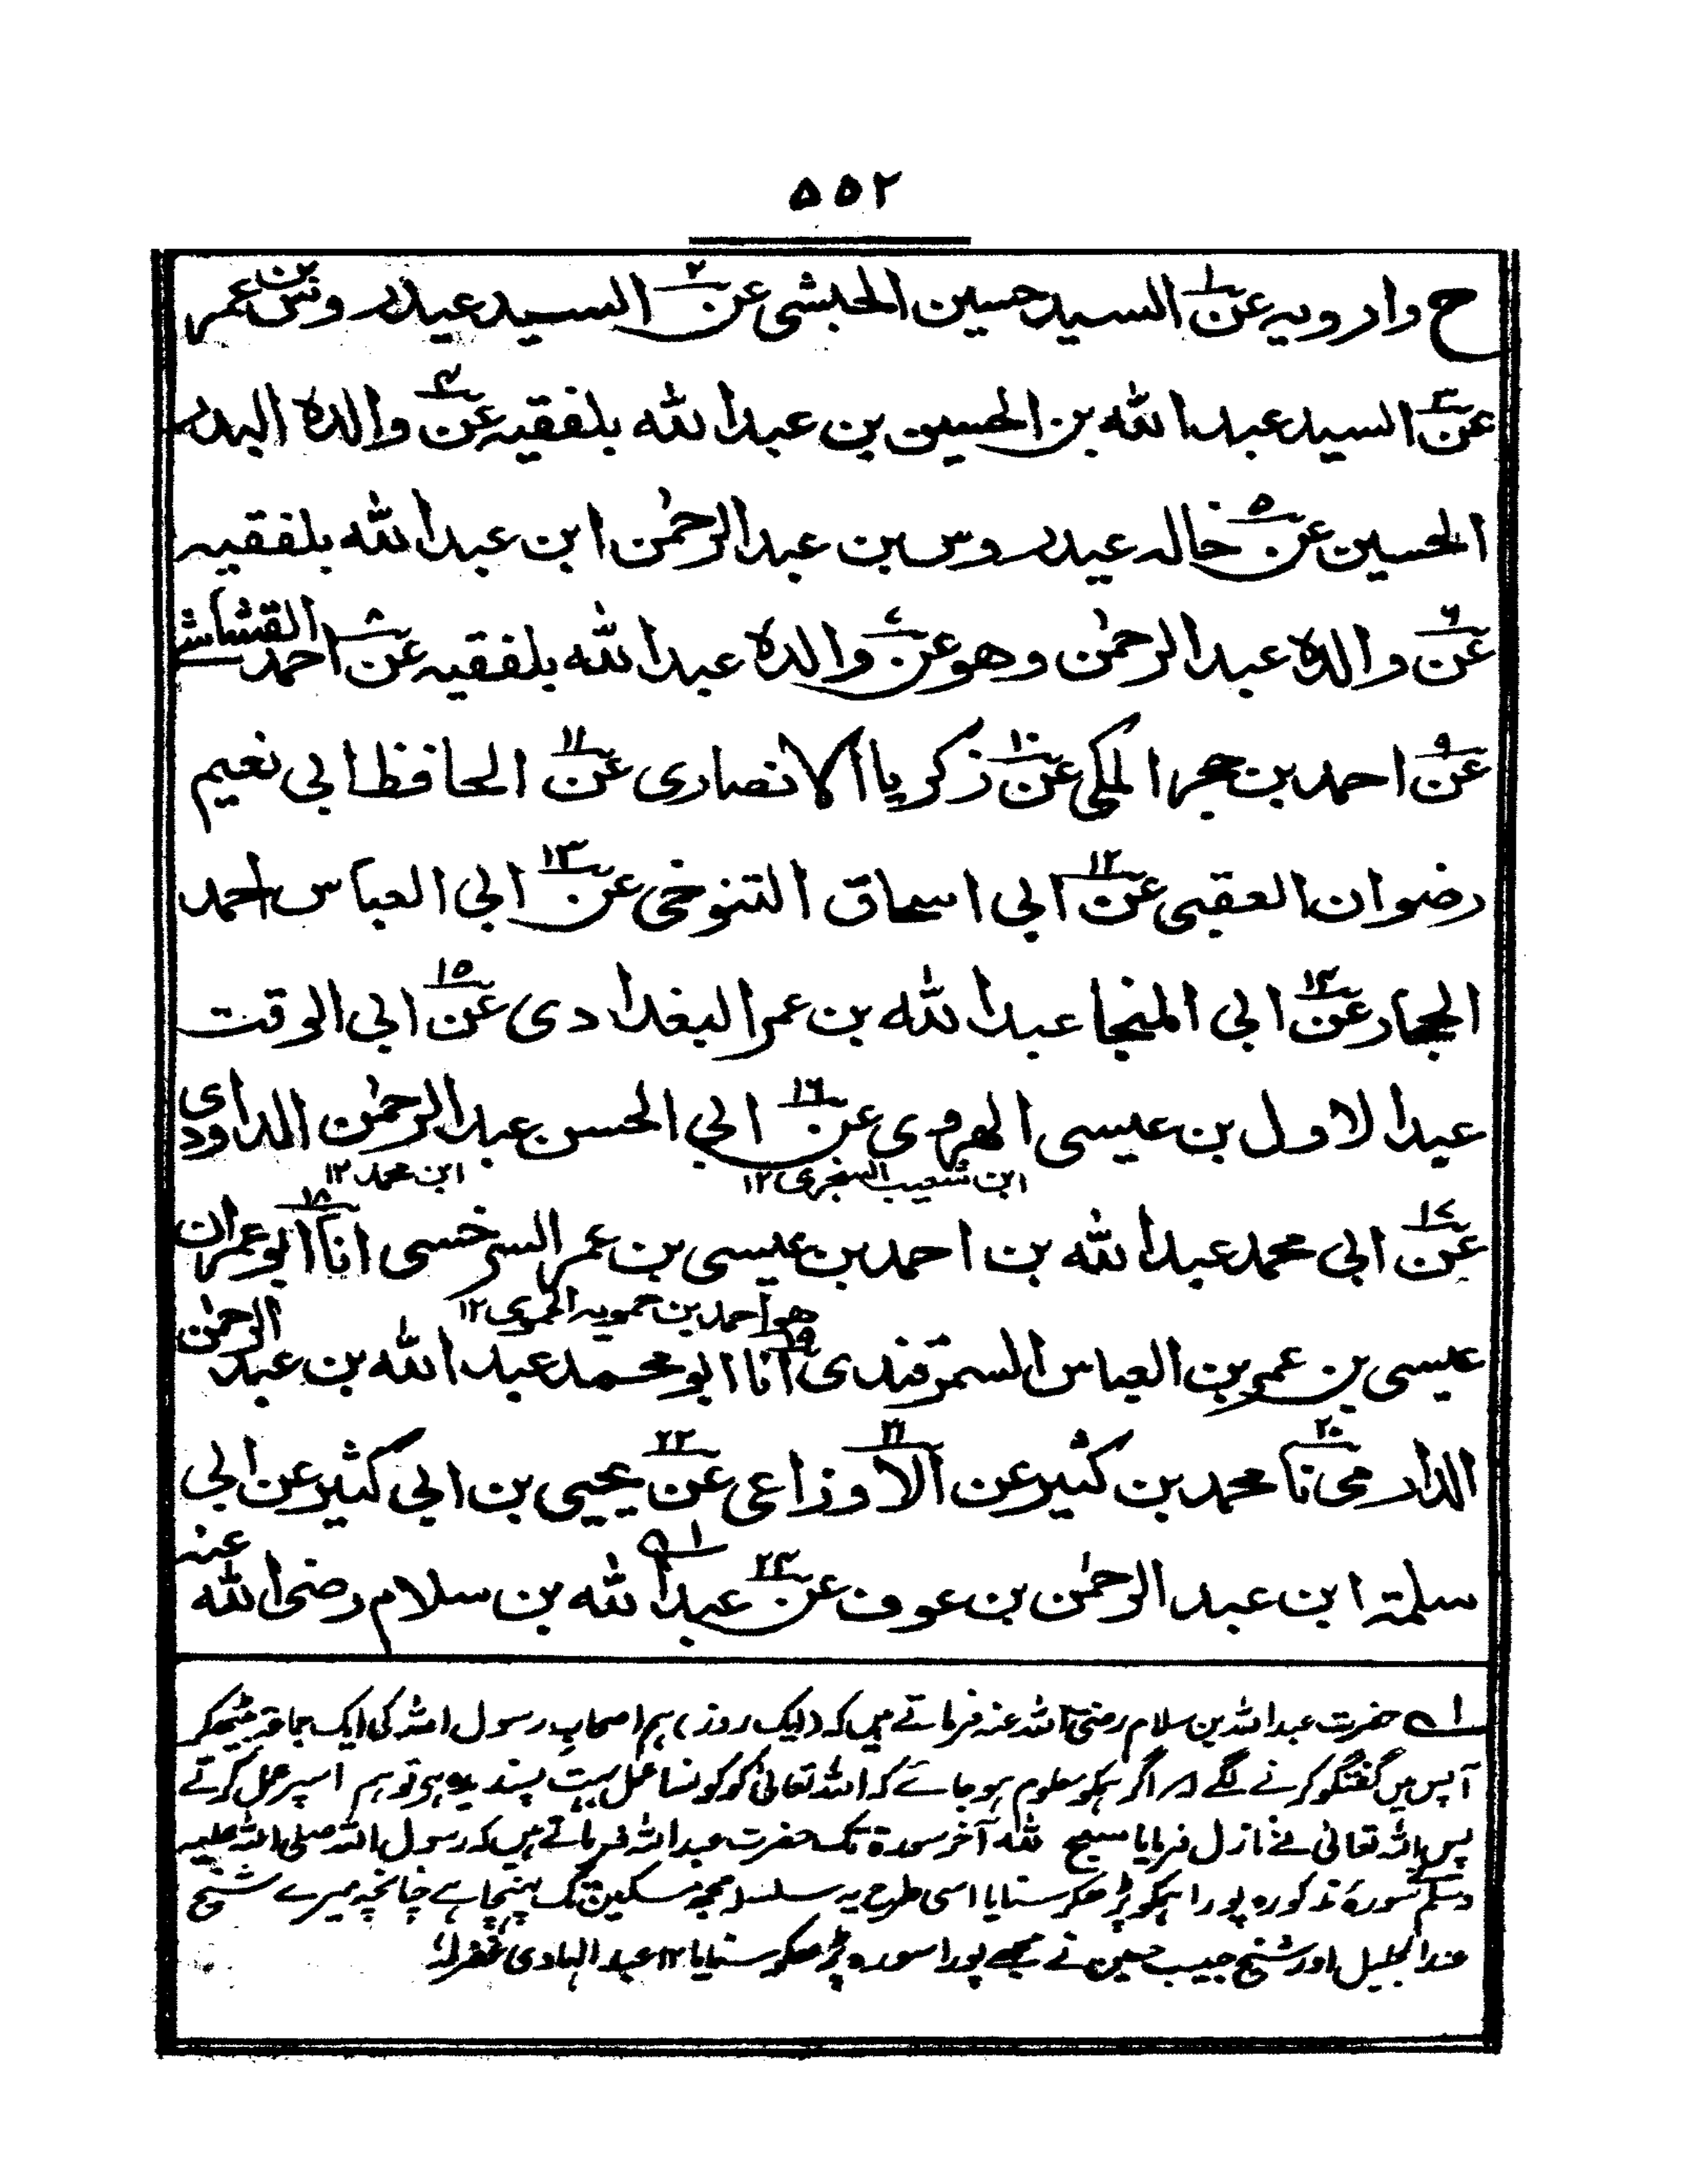 ٥٥٢
ح وارويه عن١ السيد حسين الحبشى عن٢ السيد عيدروس بن عمر
عن٣ السيد عبدالله بن الحسين بن عبدالله بلفقيه عن٤ والده البدر
الحسين عن٥ خاله عيدروس بن عبدالرحمٰن ابن عبدالله بلفقيه
عن٦ والده عبدالرحمٰن وهو عن٧ والده عبدالله بلفقيه عن٨ احمد القشاشے
عن٩ احمد بن حجر المكى عن١٠ زكريا الانصارى عن١١ الحافظ ابى نعيم
رضوان العقبى عن١٢ ابى اسحاق التنوخى عن١٣ ابى العباس احمد
الحجار عن١٤ ابى المنجا عبدالله بن عمر البغدادى عن١٥ ابى الوقت
عبدالاول بن عيسى الهروى عن١٦ ابي الحسن عبدالرحمٰن الداودى
ابن شعيب السنجرى ١٢ ابن محمد ١٢
عن١٧ ابى محمد عبدالله بن احمد بن عيسى بن عمر السرخسى انا١٨ ابو عمران
هو احمد بن حمويه الحموى ١٢
عيسى بن عمر بن العباس السمرقندى انا١٩ ابو محمد عبدالله بن عبد الرحمٰن
الدارمى نا٢٠ محمد بن كثير عن الاوزاعى٢١ عن٢٢ يحيى بن ابى كثير عن ابى
سلمة ابن عبدالرحمٰن بن عوف عن٢٤ عبدالله بن سلام رضى الله عنه
١ے حضرت عبداللہ بن سلام رضی اللہ عنہ فرماتے ہیں کہ (ایک روز) ہم اصحابِ رسول اللہ کی ایک جماعۃ بیٹھکر
آپس میں گفتگو کرنے لگے اور اگر ہمکو معلوم ہو جائے کہ اللہ تعالیٰ کو کونسا عمل بہت پسندیدہ ہی تو ہم اسپر عمل کرتے
پس اللہ تعالیٰ نے نازل فرمایا سبح للہ آخر سورۃ تک حضرت عبداللہ فرماتے ہیں کہ رسول اللہ صلی اللہ علیہ
وسلم نے سورۂ مذکورہ پورا ہمکو پڑھکر سنایا اسی طرح یہ سلسلہ مجھ مسکین تک پہنچا ہے چنانچہ میرے شیخ
عبدالجلیل اور شیخ حبیب حسین نے مجھے پورا سورہ پڑھکر سنایا ١٢ عبدالہادی غفرلہٗ